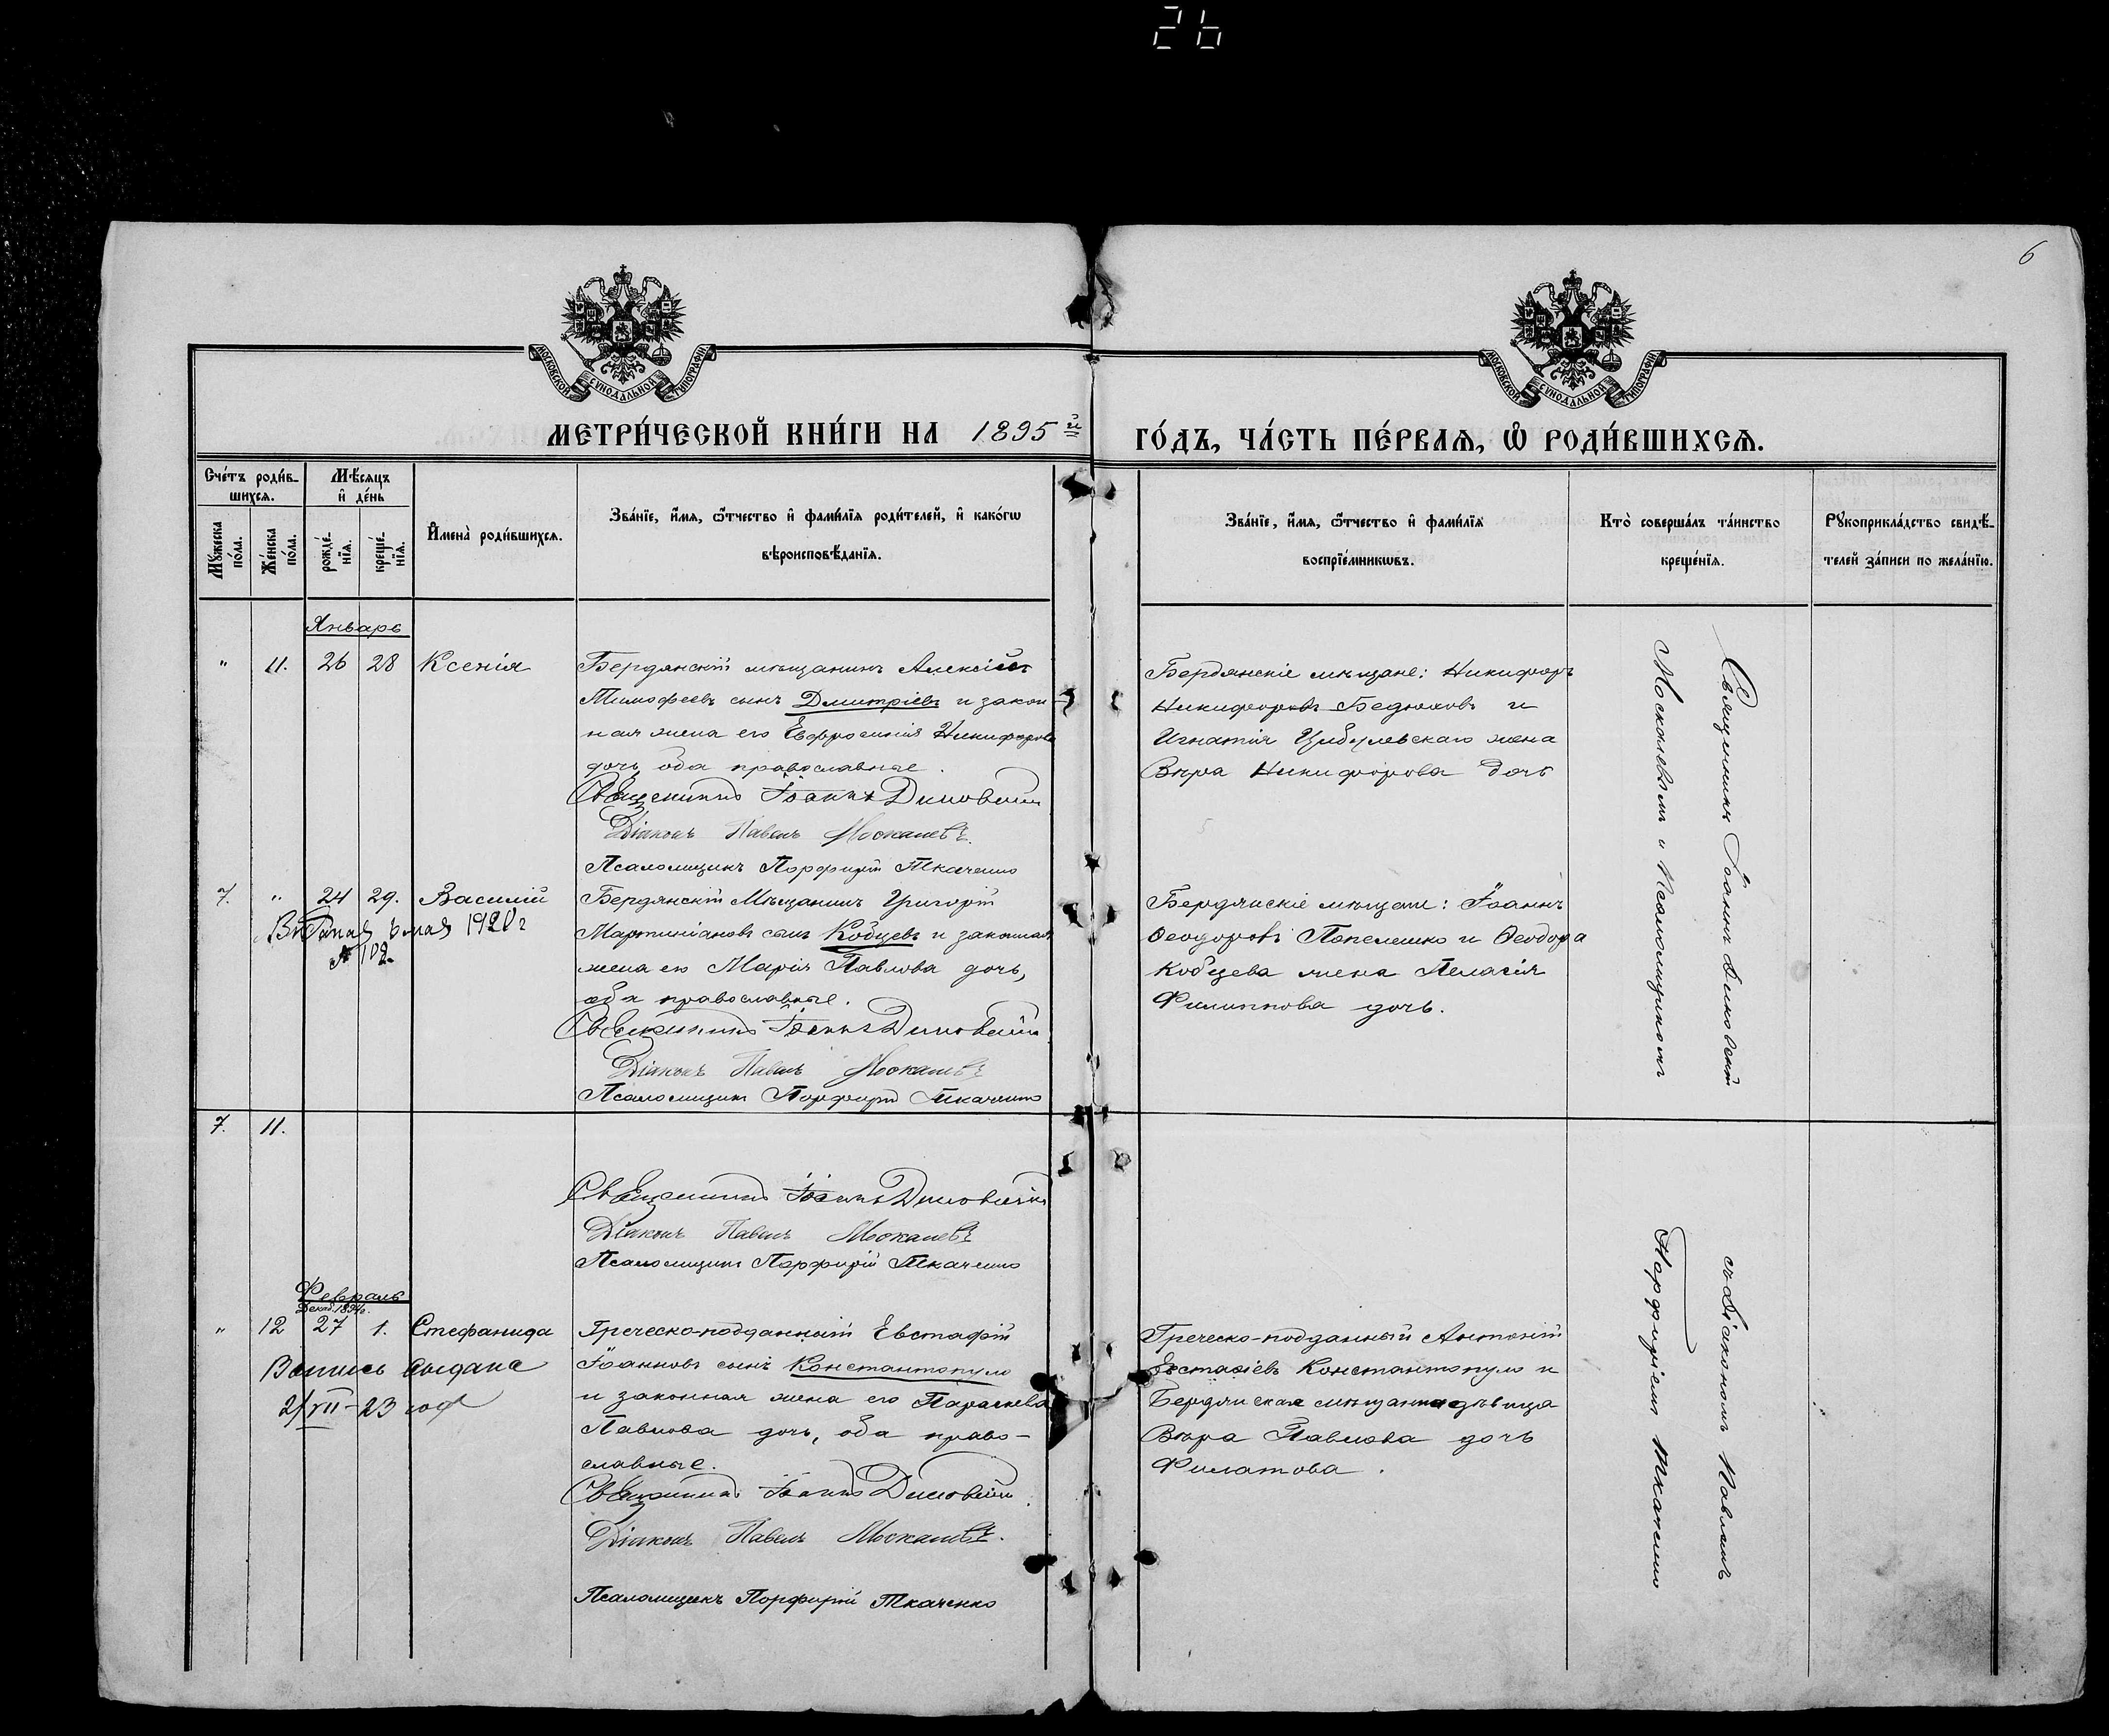 26
6
МОСКОВСКОЙ СѴНОДАЛЬНОЙ ТИПОГРАФІИ
МОСКОВСКОЙ СѴНОДАЛЬНОЙ ТИПОГРАФІИ
МЕТРИ́ЧЕСКОЙ КНИ́ГИ НА 1895 й ГО́ДЪ, ЧА́СТЬ ПЕ́РВАѦ, Ѡ҆ РОДИ́ВШИХСѦ.
Сче́тъ роди́в-
шихсѧ.
Мꙋ́жеска по́ла.
Же́нска по́ла.
Мѣ́сѧцъ
и҆ де́нь
рожде́-нїѧ.
креще́-нїѧ.
И҆мена̀ роди́вшихсѧ.
Зва́нїе, и҆́мѧ, ѻ҆́тчество и҆ фами́лїѧ роди́телей, и҆ како́гѡ
вѣроисповѣ́данїѧ.
Зва́нїе, и҆́мѧ, ѻ҆́тчество и҆ фами́лїѧ
воспрїе́мникѡвъ.
Кто̀ соверша́лъ та́инство
креще́нїѧ.
Рꙋкоприкла́дство свидѣ́-
телей за́писи по жела́нїю.
Январь
" 11. 26 28 Ксенія
Бердянскій мѣщанинъ Алексій
Тимофеевъ сынъ Дмитріевъ и закон-
ная жена его Евфросинія Никифорова
дочь, оба православные.
Священникъ Іоаннъ Диковскій
Діаконъ Павелъ Москалевъ.
Псаломщикъ Порфирій Ткаченко
Бердянскіе мѣщане: Никифоръ
Никифоровъ Бедюховъ и
Игнатія Цибулевскаго жена
Вѣра Никифорова дочь
7. " 24 29. Василій
мая 1920 г
№ 102.
Бердянскій Мѣщанинъ Григорій
Мартиніановъ сынъ Кобцевъ и законная
жена его Марія Павлова дочь,
оба православные.
Священникъ Іоаннъ Диковскій
Діаконъ Павелъ Москалевъ
Псаломщикъ Порфирій Ткаченко
Бердянскіе мѣщане: Іоаннъ
Ѳеодоровъ Попелешко и Ѳеодора
Кобцева жена Пелагія
Филиппова дочь.
7. 11.
Священникъ Іоаннъ Диковскій
Діаконъ Павелъ Москалевъ
Псаломщикъ Порфирій Ткаченко
Февраль
Декаб. 1894 г.
" 12 27 1. Стефанида
Выпись выдана
2/VII-23 года
Греческо-подданный Евстафій
Іоанновъ сынъ Константопуло
и законная жена его Параскева
Павлова дочь, оба право-
славные.
Священникъ Іоаннъ Диковскій
Діаконъ Павелъ Москалевъ.
Псаломщикъ Порфирій Ткаченко
Греческо-подданный Антоній
Евстафіевъ Константопуло и
Бердянская мѣщанка дѣвица
Вѣра Павлова дочь
Филатова.
Священникъ Іоаннъ Диковскій съ Діакономъ Павломъ
Москалевымъ и Псаломщикомъ Порфиріемъ Ткаченко